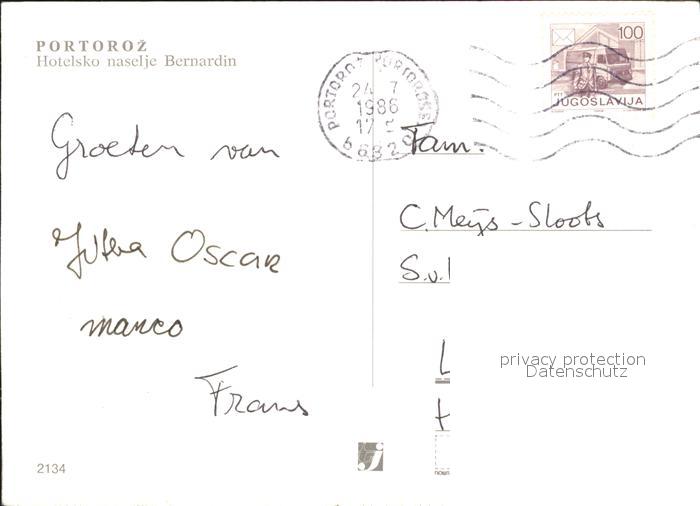 PORTOROŽ
Hotelsko naselje Bernardin
PORTOROŽ PORTOROSE
24 7
1986
17
66320
100
PTT
JUGOSLAVIJA
Groeten van
Jutka Oscar
marco
Frans
Fam.
C. Meijs - Sloots
S.v.l
L
H
privacy protection
Datenschutz
2134